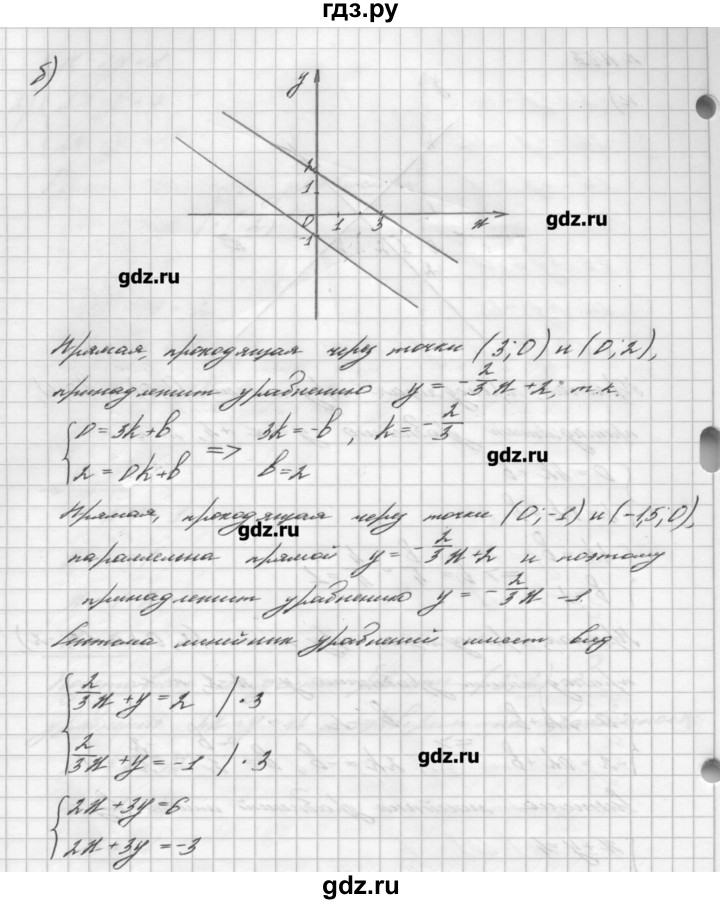 гдз.ру
б)
y
2
1
0 1 3 x
-1
gdz.ru
gdz.ru
Прямая, проходящая через точки (3; 0) и (0; 2),
принадлежит уравнению y = -2/3x + 2, т.к.
{ 0 = 3k + b => 3k = -b, k = -2/3
{ 2 = 0k + b b = 2
gdz.ru
Прямая, проходящая через точки (0; -1) и (-1,5; 0),
gdz.ru
параллельна прямой y = -2/3x + 2 и поэтому
принадлежит уравнению y = -2/3x - 1.
Система линейных уравнений имеет вид
{ 2/3x + y = 2 | · 3
{ 2/3x + y = -1 | · 3
gdz.ru
{ 2x + 3y = 6
{ 2x + 3y = -3
gdz.ru